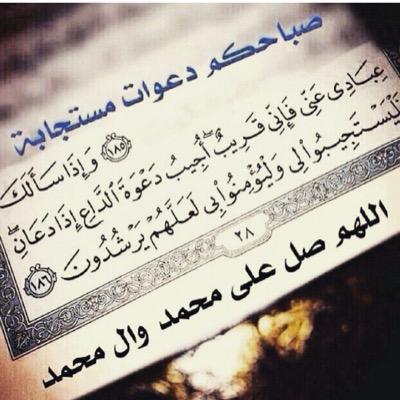 صباحكم دعوات مستجابة
١٨٥ وَإِذَا سَأَلَكَ
عِبَادِي عَنِّي فَإِنِّي قَرِيبٌ أُجِيبُ دَعْوَةَ ٱلدَّاعِ إِذَا دَعَانِ
فَلْيَسْتَجِيبُوا۟ لِي وَلْيُؤْمِنُوا۟ بِي لَعَلَّهُمْ يَرْشُدُونَ ١٨٦
٢٨
اللهم صل على محمد وال محمد